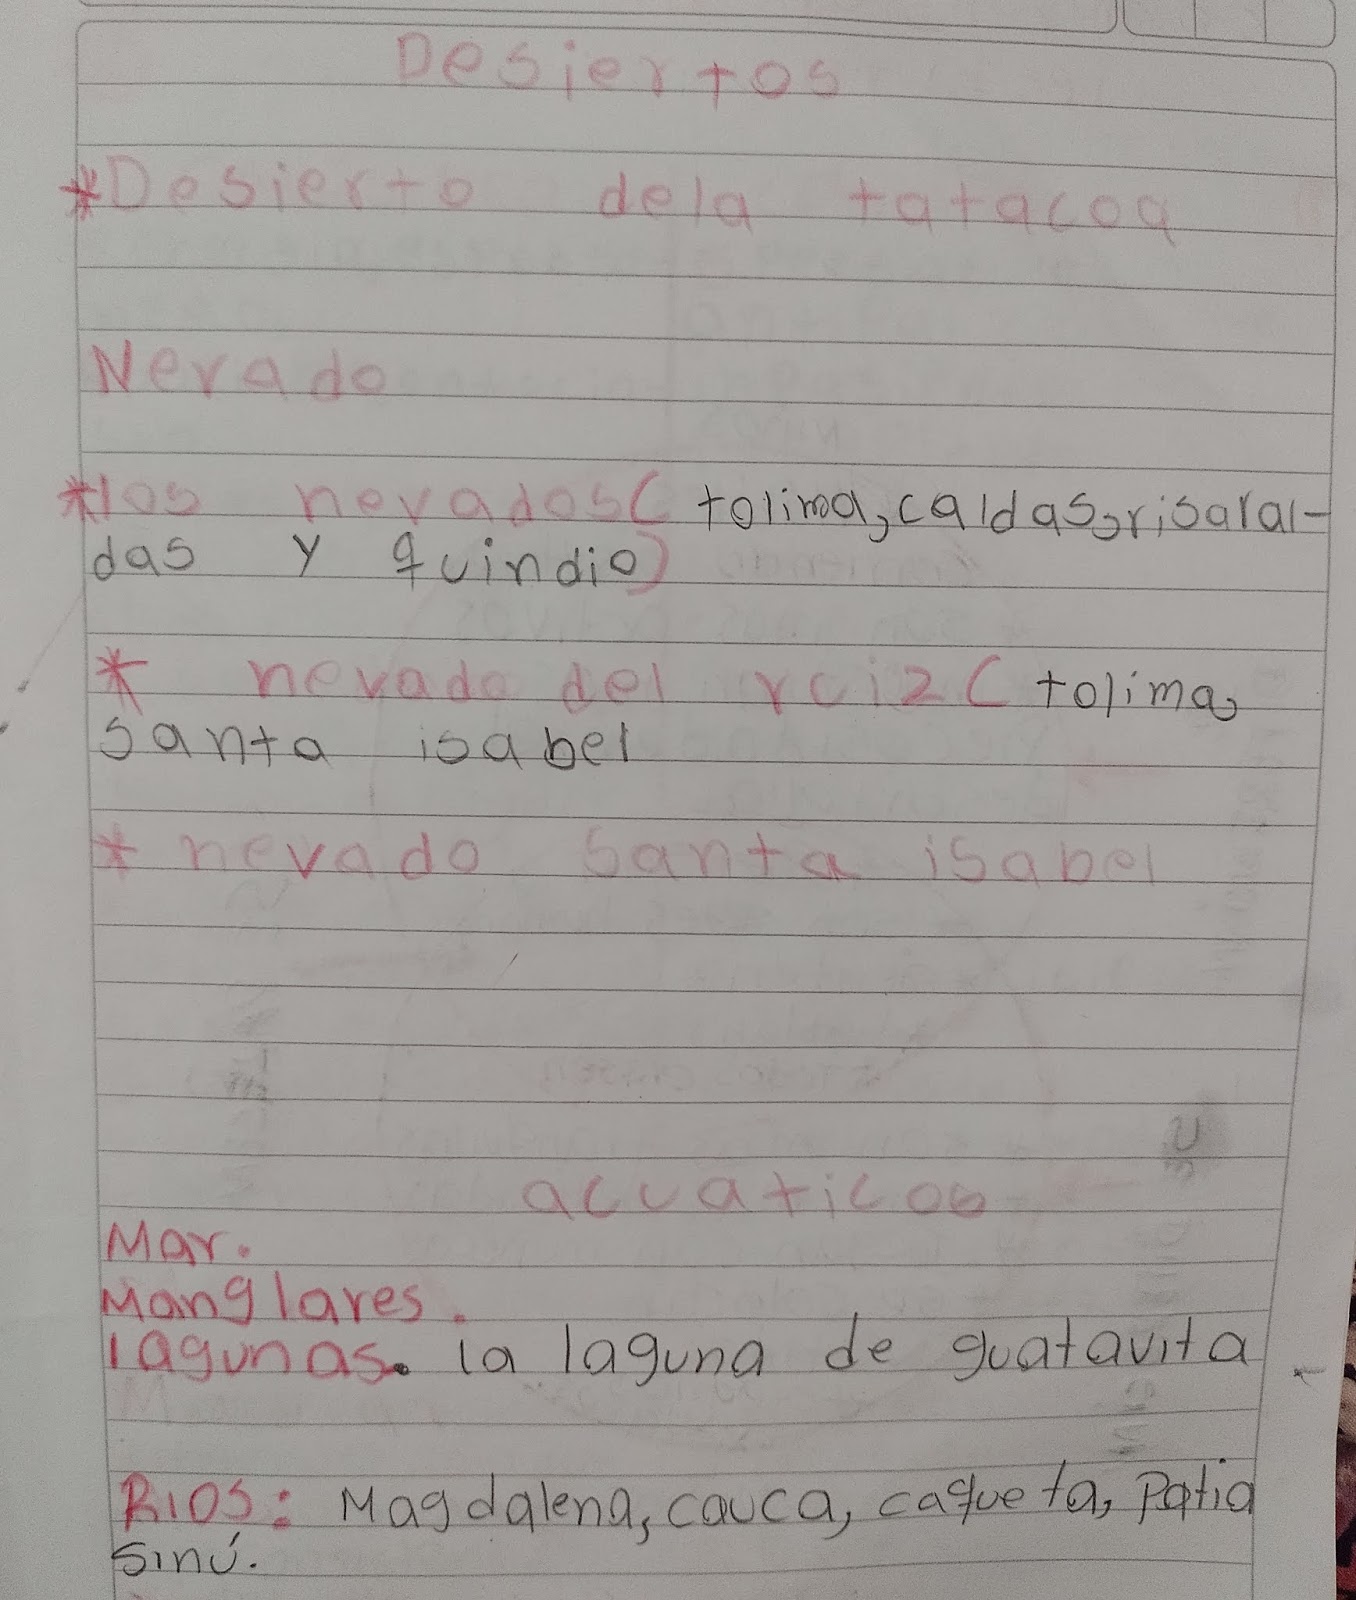 Desiertos
*Desierto dela tatacoa
Nevado
*los nevados( tolima, caldas, risaral-
das y quindio)
* nevado del rciz( tolima,
santa isabel
* nevado santa isabel
acuaticos
Mar.
Manglares.
lagunas. la laguna de guatavita
RIOS: Magdalena, cauca, caqueta, Patia
sinú.